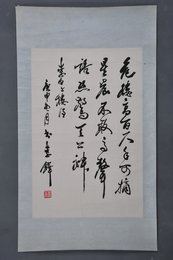 危樓高百尺手可摘
星辰不敢高聲
語恐驚天
李白
庚申 月 李鐸